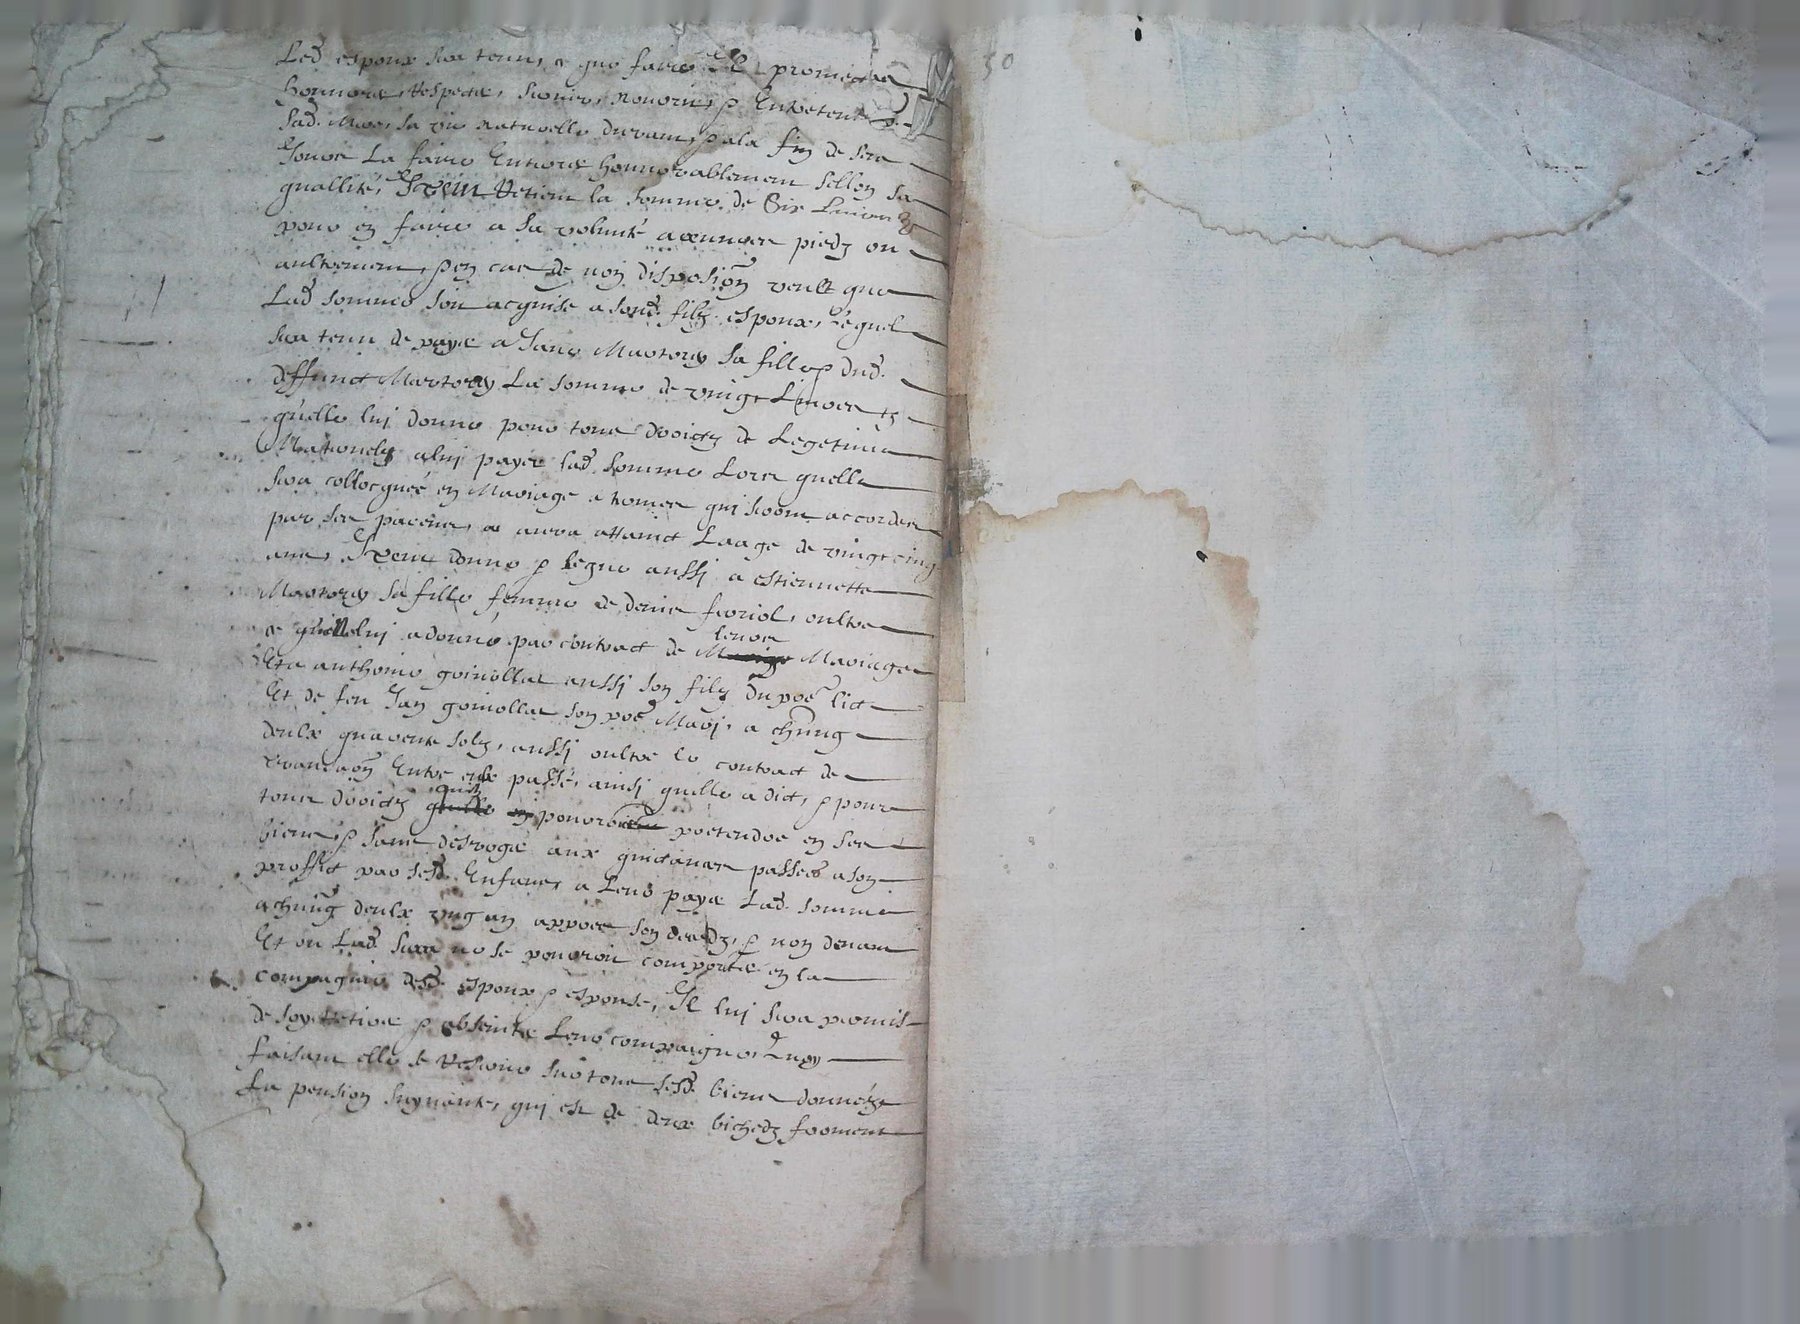 Led espoux sera tenu, ce que faire Il promectra
honnorer, Respecter, servir, nourrir, & Entretenir
sad. Mere, sa vie naturelle durant, & a la fin de ses
Jours La faire Enterrer honnorablement sellon sa
quallité, Item Retient la somme de Six Livres
pour en faire a sa volunté a oeuvres piedz ou
aultrement, & en cas de non disposion veult que
Lad somme soit acquise a sond. filz espoux, Lequel
sera tenu de payer a Jane Martorey sa fille & dud.
deffunct Martorey La somme de vingt Livres tz
quelle lui donne pour tous droictz de Legetime
Maternelz a lui payer lad. somme Lors quelle
sera collocquée en Mariage a termes qui seront accordes
par ses parens, ou aura attainct Laage de vingt cinq
ans, Item donne & legue aussi a estiennette
Martorey sa fille femme de denis foriol, oultre
ce quell lui a donné par contract de leur Mariage
Et a anthoine goinollat aussi son filz du pre lict
Et de feu Jan goinollat son pre Mari, a chung
deulx quarente solz, aussi oultre le contract de
transaon Entre eulx passé, ainsi quelle a dict, & pour
tous droictz quilz pourroient pretendre en ses
biens, & sans desroger aux quictances passées a son
proffict par sesd. Enfans, a Leur payer Lad. somme
a chung deulx ung an appres son decedz, & non devant
Et ou Lad. mere ne se pourroit comporter en la
compagnie desd. espoux & espouse, Il lui sera promis
de soy Retirer & absenter Leur compaignie, Quoy
faisant elle se Reserve sur tous sesd. biens donnéz
La pension suyvante, qui est de deux bichedz froment
30